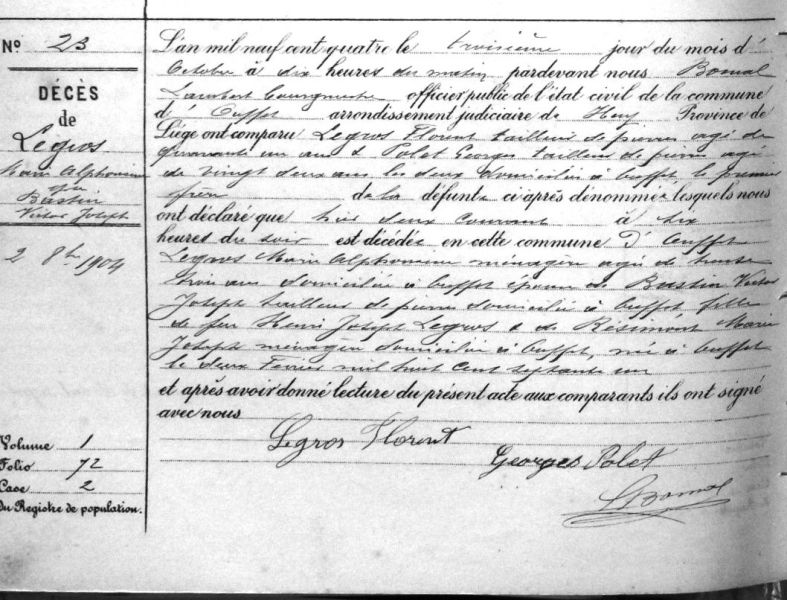 N° 23
DÉCÈS
de
Legros
Marie Alphonsine
Bastin
Victor Joseph
2 8bre 1904
Volume 1
Folio 72
Case 2
du Registre de population.
L'an mil neuf cent quatre le troisième jour du mois d'
Octobre à dix heures du matin pardevant nous Bomal
Lambert bourgmestre officier public de l'état civil de la commune
d' Ouffet arrondissement judiciaire de Huy Province de
Liège ont comparu Legros Florent tailleur de pierres agé de
quarante un ans & Polet Georges tailleur de pierres agé
de vingt deux ans les deux domiciliés à Ouffet le premier
frère de la défunte ci après dénommée lesquels nous
ont déclaré que hier deux courant à six
heures du soir est décédée en cette commune d' Ouffet
Legros Marie Alphonsine ménagère agée de trente
trois ans domiciliée à Ouffet épouse de Bastin Victor
Joseph tailleur de pierres domicilié à Ouffet fille
de feu Henri Joseph Legros & de Résimont Marie
Joseph ménagère domiciliée à Ouffet, née à Ouffet
le deux Fevrier mil huit cent septante un
et après avoir donné lecture du présent acte aux comparants ils ont signé
avec nous
Legros Florent
Georges Polet
LBomal